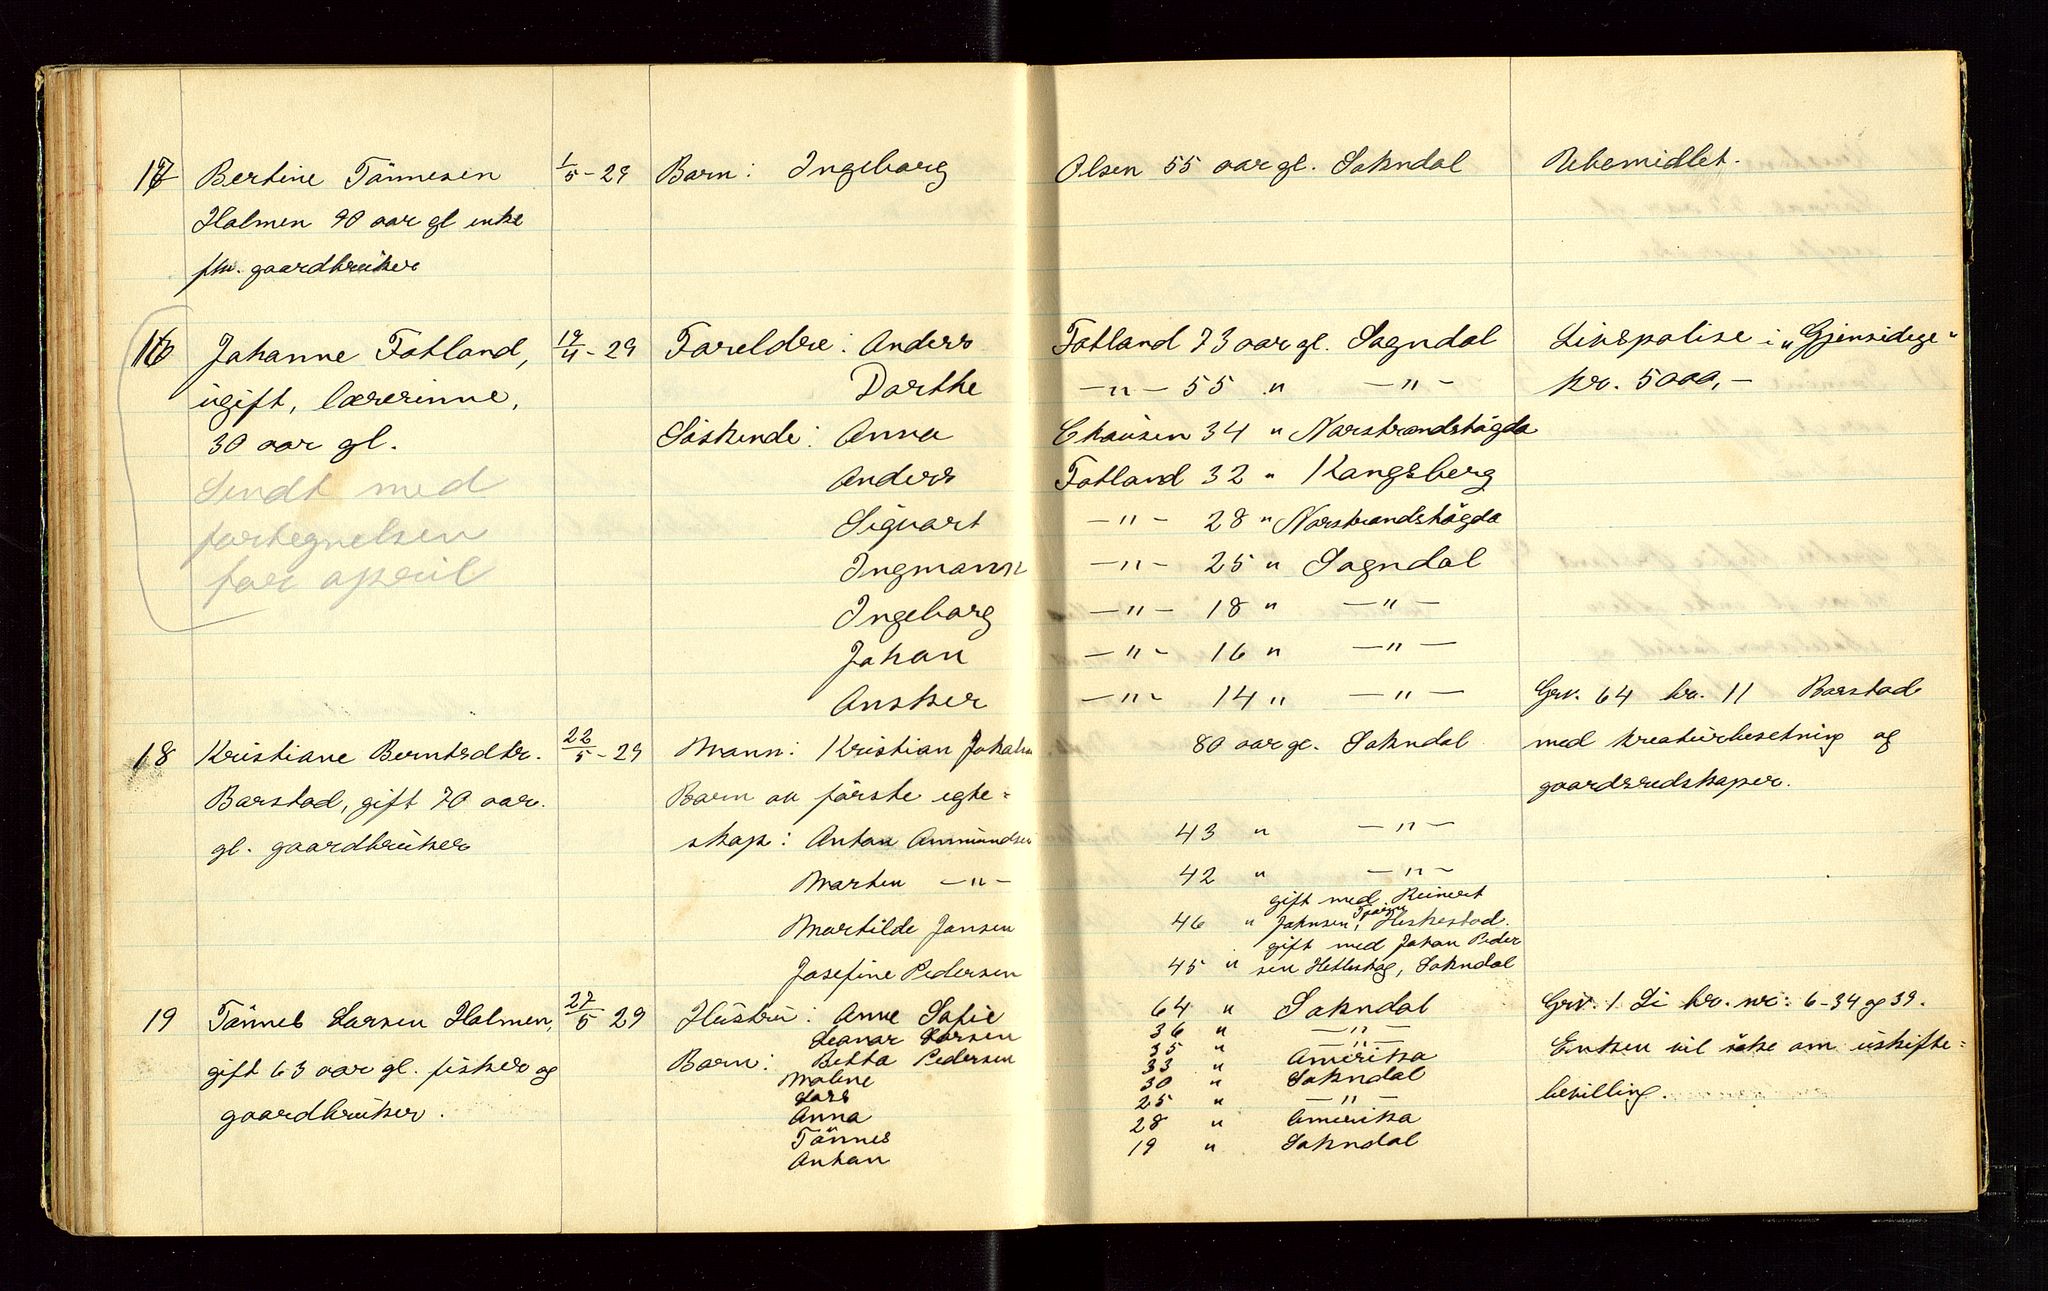 17 Bertine Tönnesen 1/5-29 Barn: Ingeborg Olsen 55 aar gl. Sokndal Ubemidlet.
Holmen 90 aar gl enke
fhv. gaardbruker
16 Johanne Fotland, 19/4-29 Foreldre: Anders Fotland 73 aar gl. Sogndal Livspolise i "Gjensidige"
ugift, lærerinne, Dorthe —"— 55 " —"— kr. 5000,—
30 aar gl. Söskende: Anna Chausen 34 " Norstrandshögda
Sendt med Anders Fotland 32 " Kongsberg
fortegnelsen Sigvart —"— 28 " Norstrandshögda
for april Ingmann —"— 25 " Sogndal
Ingeborg —"— 18 " —"—
Johan —"— 16 " —"—
Ansker —"— 14 " —"— Grv. 64 br. 11 Barstad
18 Kristiane Berntsdtr. 22/5-29 Mann: Kristian 80 aar gl. Sokndal med kreaturbesetning og
Barstad, gift 70 aar. Barn av förste egte= gaardsredskaper.
gl. gaardbruker skap: Anton Ammundsen 43 " —"—
Marten —"— 42 " —"—
gift med Reinert
Martilde Jansen 46 " Johnsen, Heskestad.
gift med Johan Peder
Josefine Pedersen 45 " sen Hetleskog, Sokndal
19 Tönnes Larsen Holmen, 27/5 29 Hustru: Anne Sofie 64 " Sokndal Grv. 1 Li br. nr: 6-34 og 39.
Leonar Larsen 36 " —"—
gift 63 aar gl. fisker og Barn: Betta Pedersen 35 " —"— Enken vil söke om uskifte=
Maline 33 " Amerika
Lars 30 " Sokndal bevilling.
gaardbruker. Anna 25 " —"—
Tönnes 28 " Amerika
Anton 19 " Sokndal